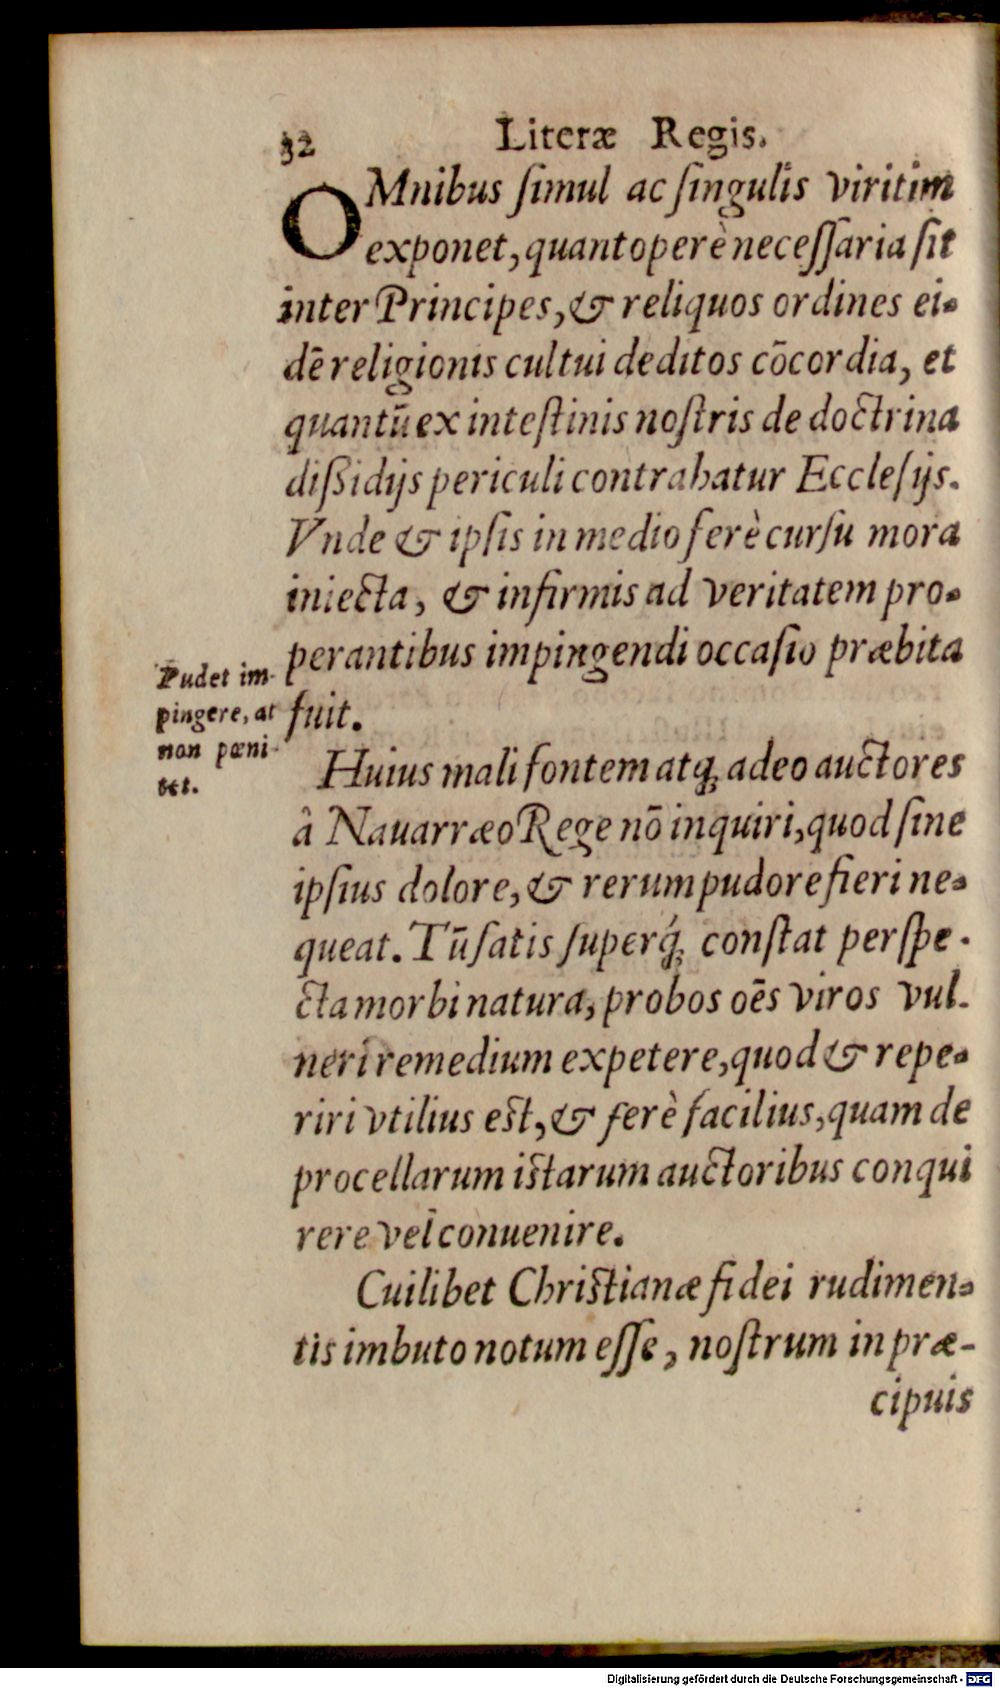 32 Literæ Regis.
OMnibus ſimul ac ſingulis viritim
exponet, quantoperè neceſſaria ſit
inter Principes, & reliquos ordines ei-
dē religionis cultui deditos cōcordia, et
quantū ex inteſtinis noſtris de doctrina
diſsidijs periculi contrahatur Eccleſijs.
Vnde & ipſis in medio ferè curſu mora
iniecta, & infirmis ad veritatem pro-
perantibus impingendi occaſio præbita
fuit.
Pudet im-
pingere, at
non pœni-
tet.
Huius mali fontem atq; adeo auctores
â Nauarræo Rege nō inquiri, quod ſine
ipſius dolore, & rerum pudore fieri ne-
queat. Tū ſatis ſuperq́; conſtat perſpe-
cta morbi natura, probos oēs viros vul-
neri remedium expetere, quod & repe-
riri vtilius eſt, & ferè facilius, quam de
procellarum iſtarum auctoribus conqui
rere vel conuenire.
Cuilibet Chriſtianæ fidei rudimen-
tis imbuto notum eſſe, noſtrum in præ-
cipuis
Digitalisierung gefördert durch die Deutsche Forschungsgemeinschaft - DFG